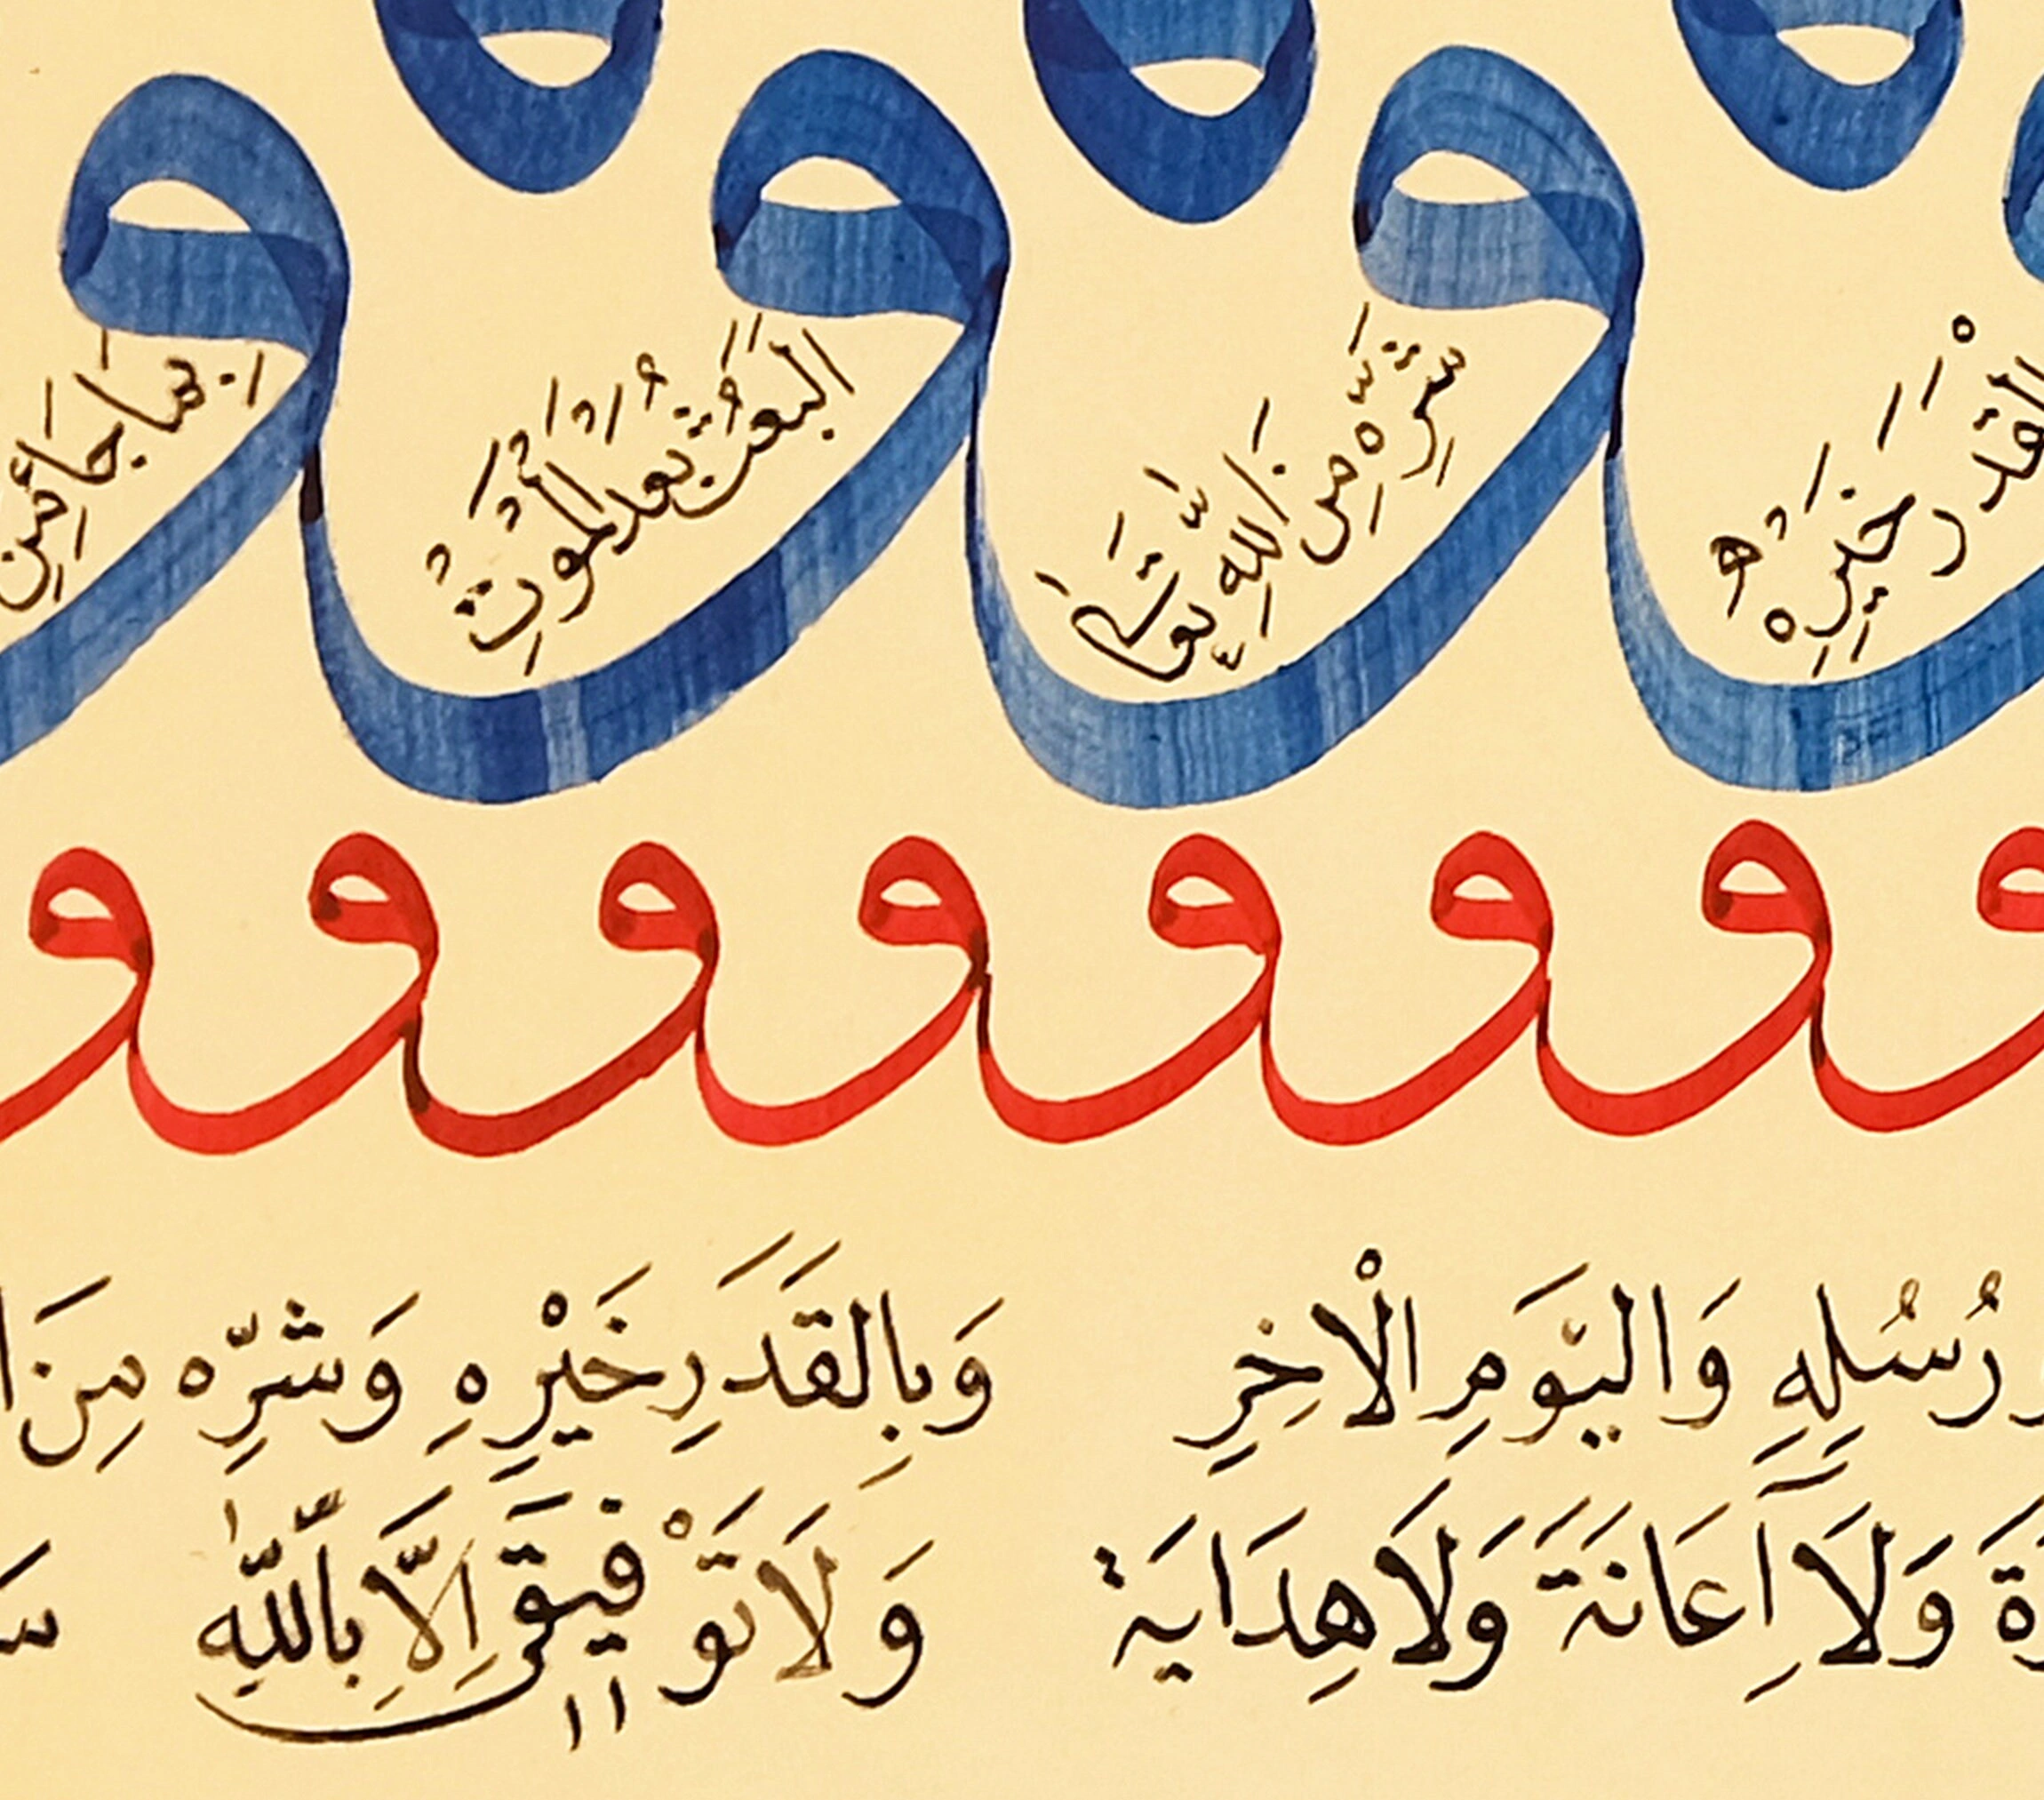 و و و و
القدر خيره
شره من الله تعالى
البعث بعد الموت
و و و و و و و و
رُسُلِهِ وَالیَوْمِ الْاخِرِ وَبِالقَدَرِ خَيْرِهِ وَشَرِّه مِنَ
وَلَا اِعَانَةَ وَلَا هِدَايَة وَلَا تَوْفيقَى اِلَّا بِاللّٰهِ